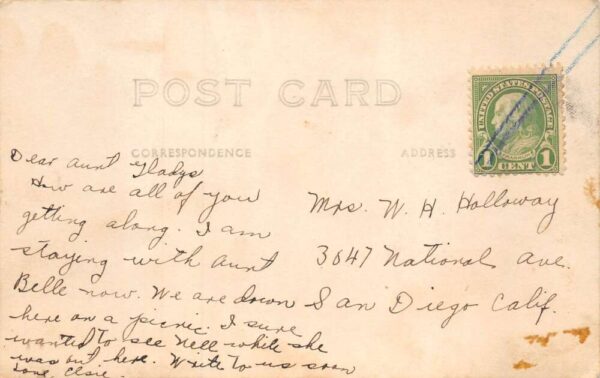 POST CARD
UNITED STATES POSTAGE
1 CENT 1
CORRESPONDENCE
ADDRESS
Dear Aunt Gladys
How are all of you
getting along. I am
staying with Aunt
Belle now. We are down
here on a picnic. I sure
wanted to see Nell while she
was out here. Write to us soon
Love, Elsie
Mrs. W. H. Holloway
3647 National Ave.
San Diego Calif.